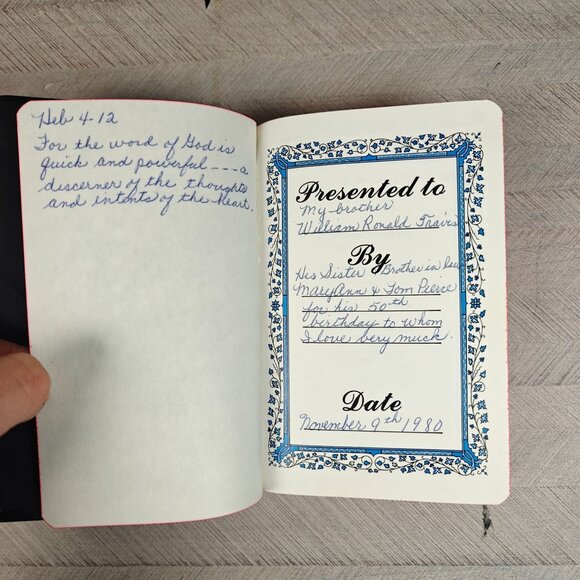 Heb 4-12
For the word of God is
quick and powerful---a
discerner of the thoughts
and intents of the heart.
Presented to
My brother
William Ronald Travis
By
His Sister & Brother in law
MaryAnn & Tom Pierce
for his 50th
birthday to whom
I love very much.
Date
November 9th 1980